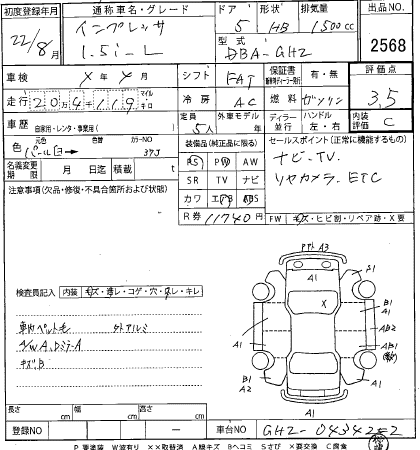 初度登録年月 通称車名・グレード ドア 形状 排気量 出品NO
22/8月 インプレッサ 1.5i-L 5 HB 1500cc 2568
型式 DBA-GH2
車検 × 年 × 月 シフト FAT 保証書 有・無 評価点
走行 20万4千119 マイル キロ 冷房 AC 燃料 ガソリン 3.5
車歴 自家用・レンタ・事業用( ) 定員 5人 外車モデル 年 ディーラー 並行 ハンドル 左・右 内装評価 C
色 元色 パール白 → 色替 カラーNO 37J
装備品(純正品に限る) セールスポイント(正常に機能するもの)
名義変更期限 月 日迄 積載 t
PS PW AW ナビ・TV
SR TV ナビ リヤカメラ、ETC
カワ エアB ABS
注意事項(欠品・修復・不具合箇所および状態)
R券 11740円 FW キズ・ヒビ割・リペア跡・X要
検査員記入 内装 キズ・汚レ・コゲ・穴・切レ・キレ
車内ペット毛 外アルミ
A/W A、Dミラ-A
キズB
PタトA3
A1
S1
A1
X
B1
A1
A1
AB2
AB1
A1
B1
A2
S1
A1
長さ cm 幅 cm 高さ cm
登録NO ー 車台NO GH2-043422
P要塗装 W波有り XX取替済 A線キズ Bヘコミ Sさび X要交換 C腐食